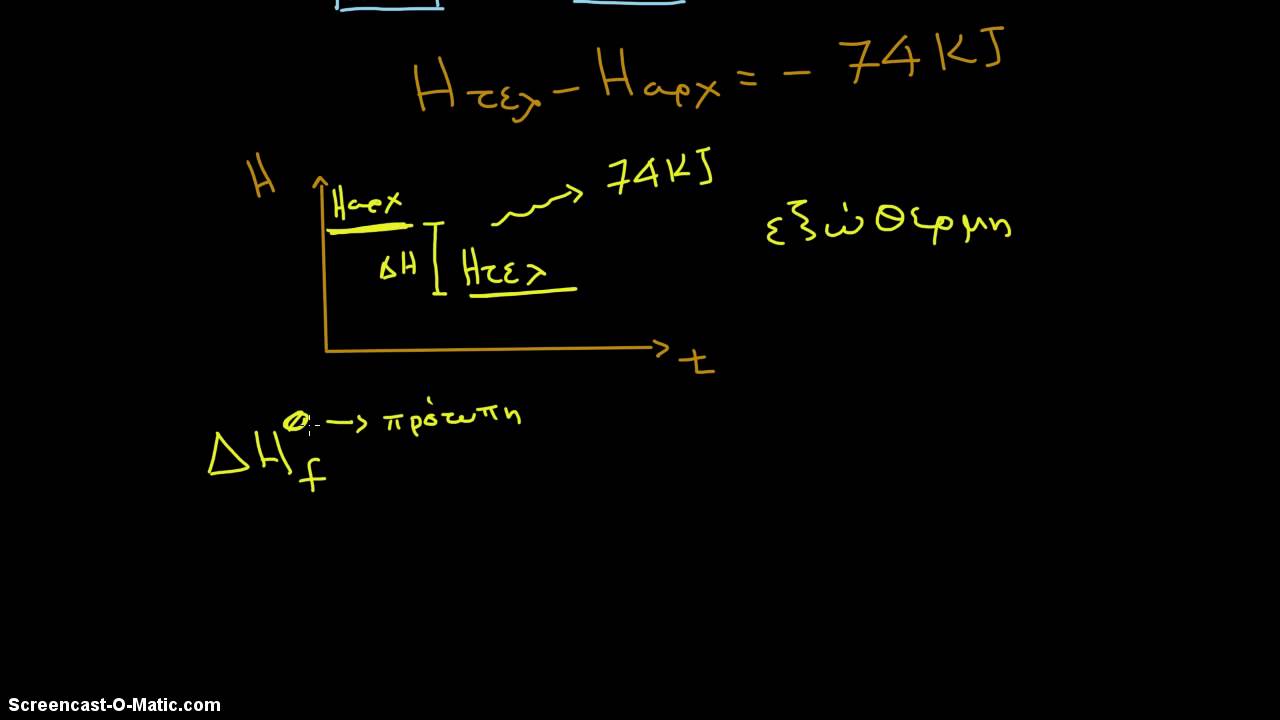 Hτελ - Hαρχ = - 74KJ
H
Hαρχ
74KJ
εξώθερμη
ΔH
Hτελ
t
ΔH°f → πρότυπη
Screencast-O-Matic.com